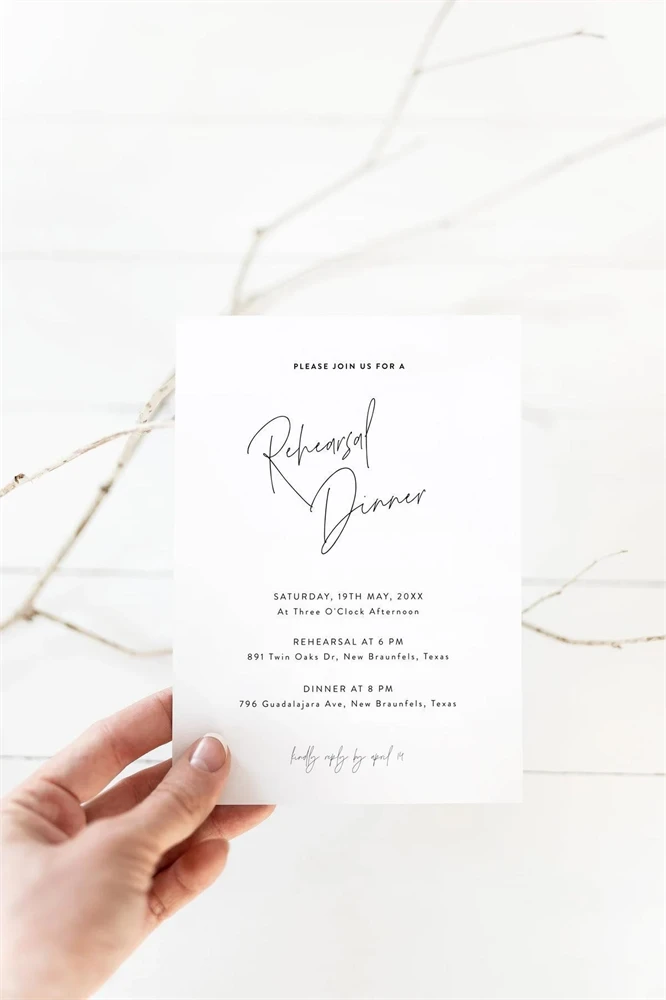 PLEASE JOIN US FOR A
Rehearsal
Dinner
SATURDAY, 19TH MAY, 20XX
At Three O'Clock Afternoon
REHEARSAL AT 6 PM
891 Twin Oaks Dr, New Braunfels, Texas
DINNER AT 8 PM
796 Guadalajara Ave, New Braunfels, Texas
kindly reply by april 19